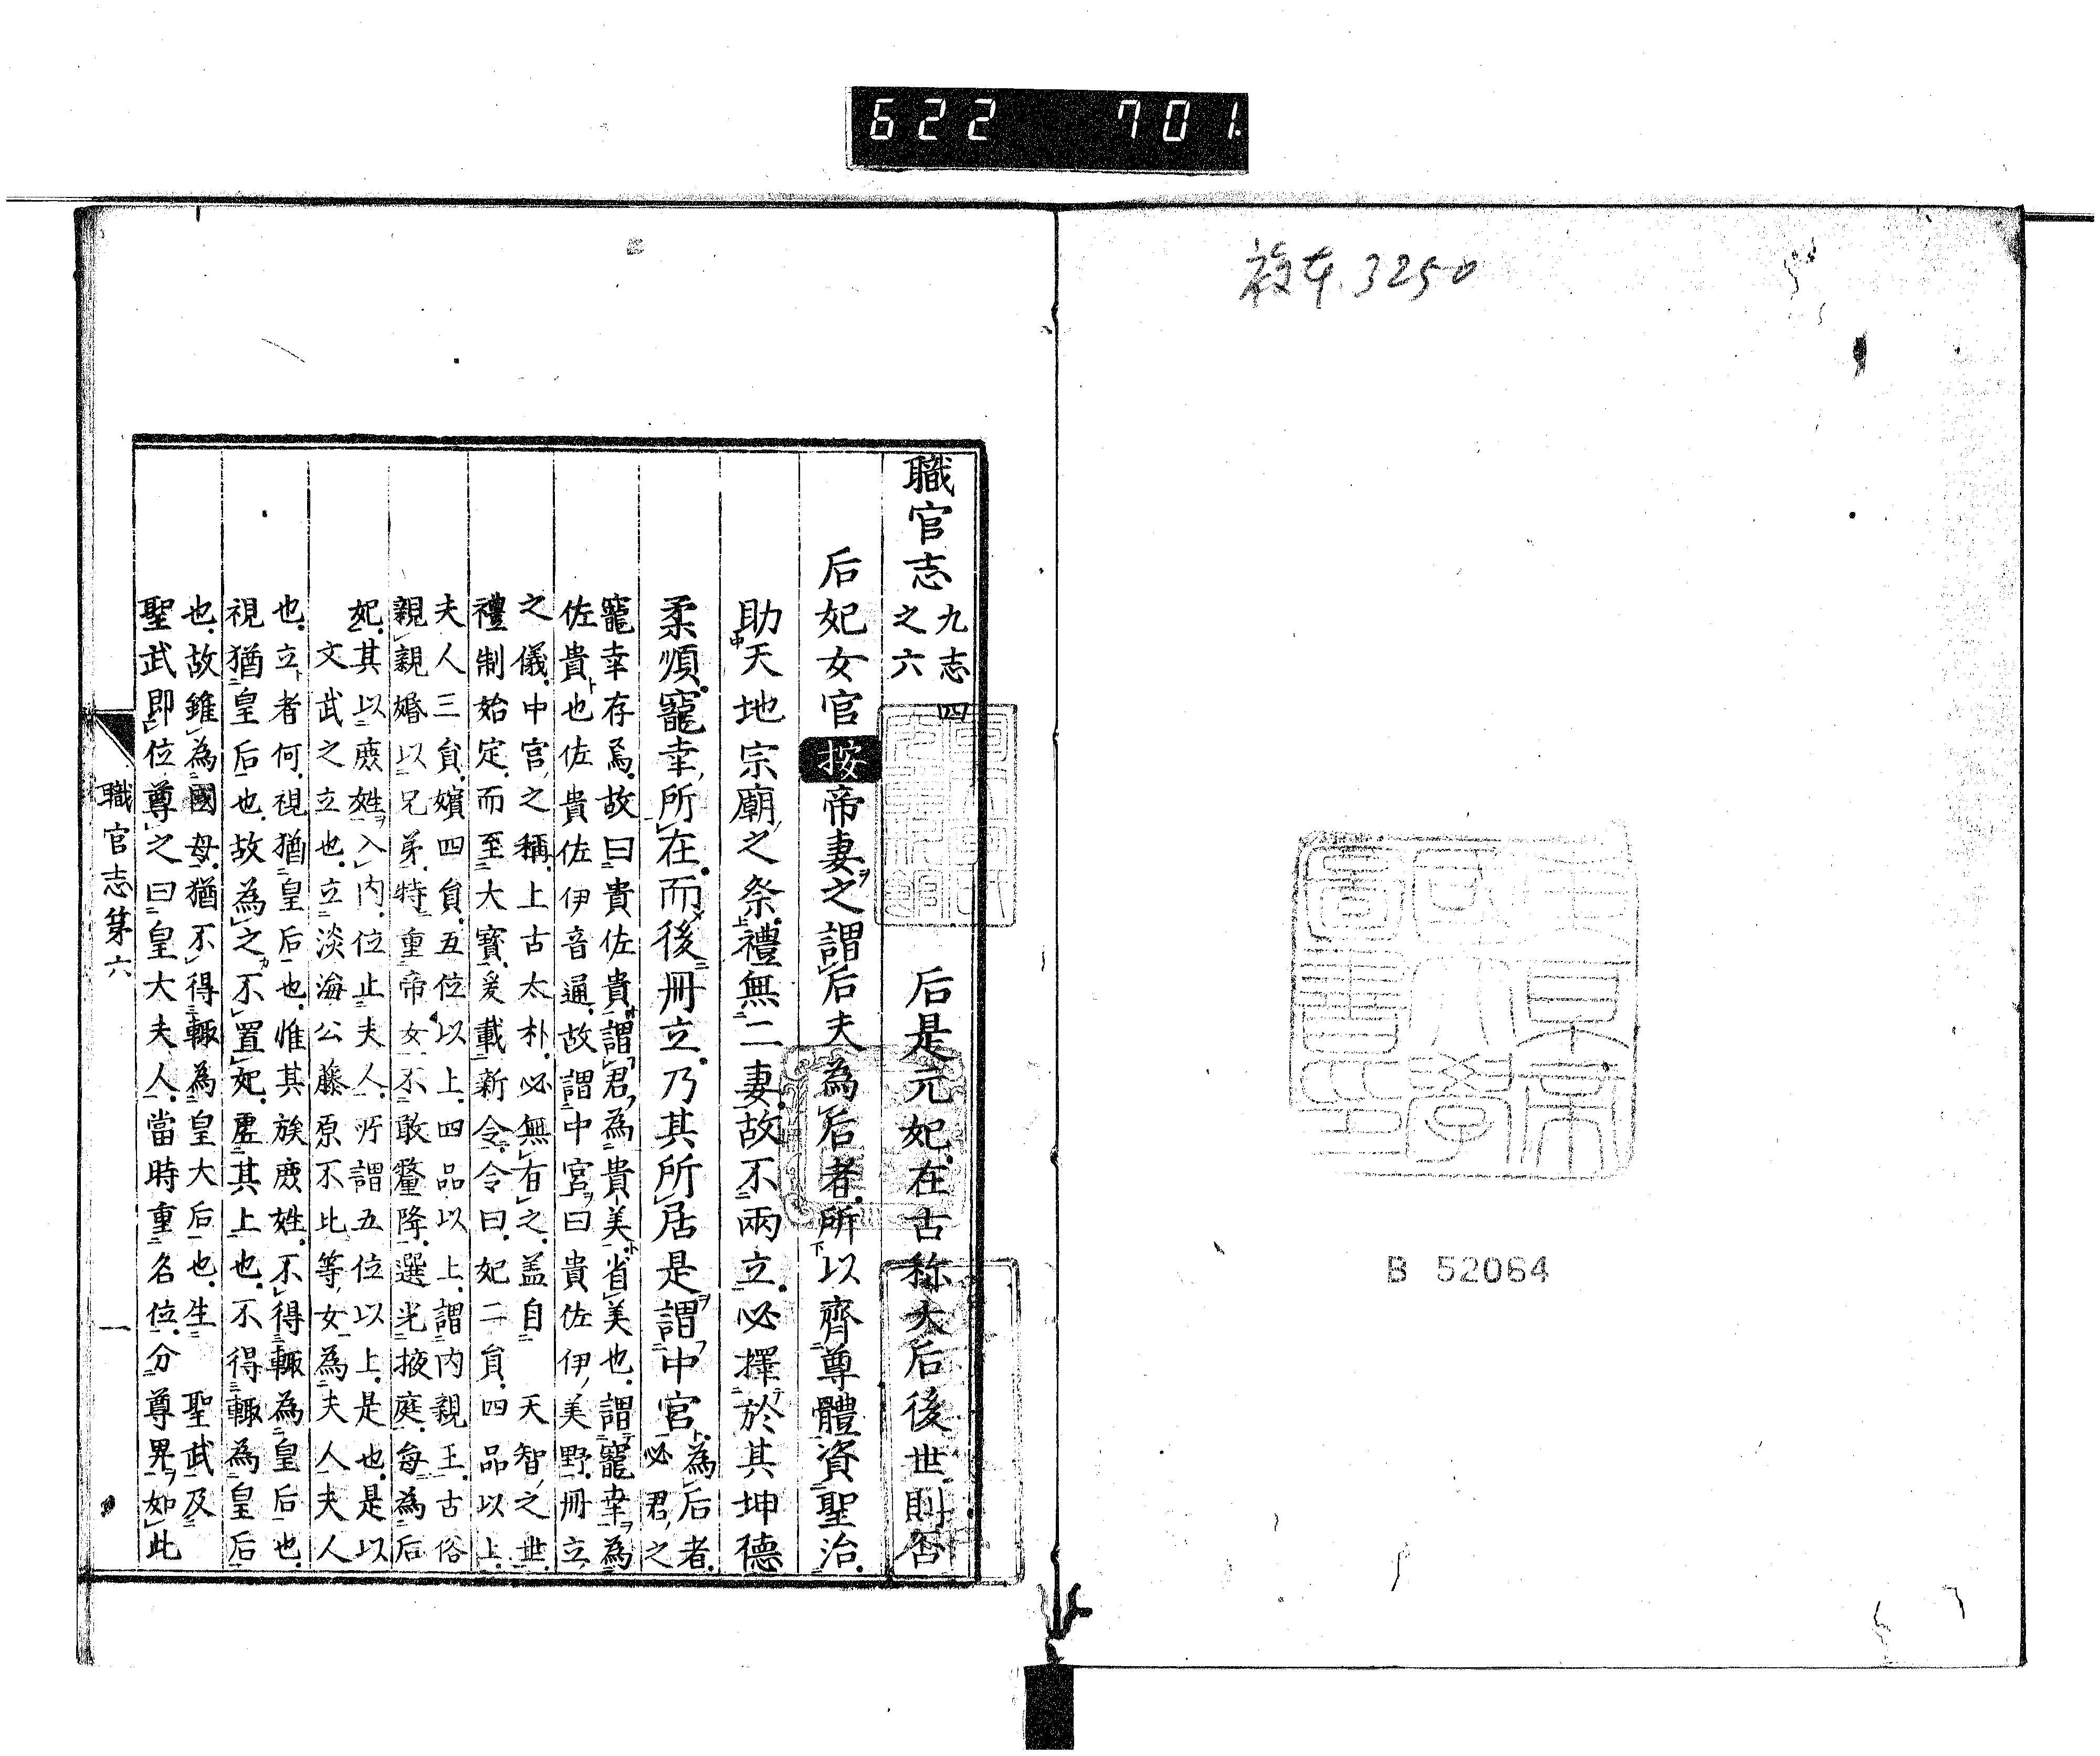 622 701
複本.3250
B 52064
職官志 九志四之六 后是元妃在古称大后後世則否
后妃女官按帝妻之謂后夫為后者所以齊尊體資聖治
助天地宗廟之祭禮無二妻故不兩立必擇於其坤德
柔順寵幸所在而後冊立乃其所居是謂中宮 為后者
必君之
寵幸存焉故曰貴佐貴謂君為貴美省美也謂寵幸為
佐貴也佐貴佐伊音通故謂中宮曰貴佐伊美野冊立
之儀中宮之稱上古太朴必無有之盖自 天智之世
禮制始定而至大寳爰載新令令曰妃二貟四品以上
夫人三貟嬪四貟五位以上四品以上謂内親王古俗
親親婚以兄弟特重帝女不敢釐降選光掖庭每為后
妃其以庶姓入内位止夫人所謂五位以上是也是以
文武之立也立淡海公藤原不比等女為夫人夫人
也立者何視猶皇后也惟其族庶姓不得輙為皇后也
視猶皇后也故為之不置妃虚其上也不得輙為皇后
也故雖為國母猶不得輙為皇大后也生 聖武及
聖武即位尊之曰皇大夫人當時重名位分尊卑如此
職官志第六 一